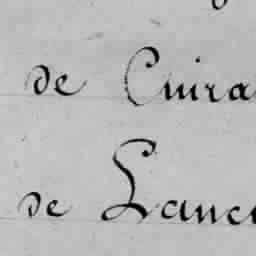 de Cuira
de Lanci